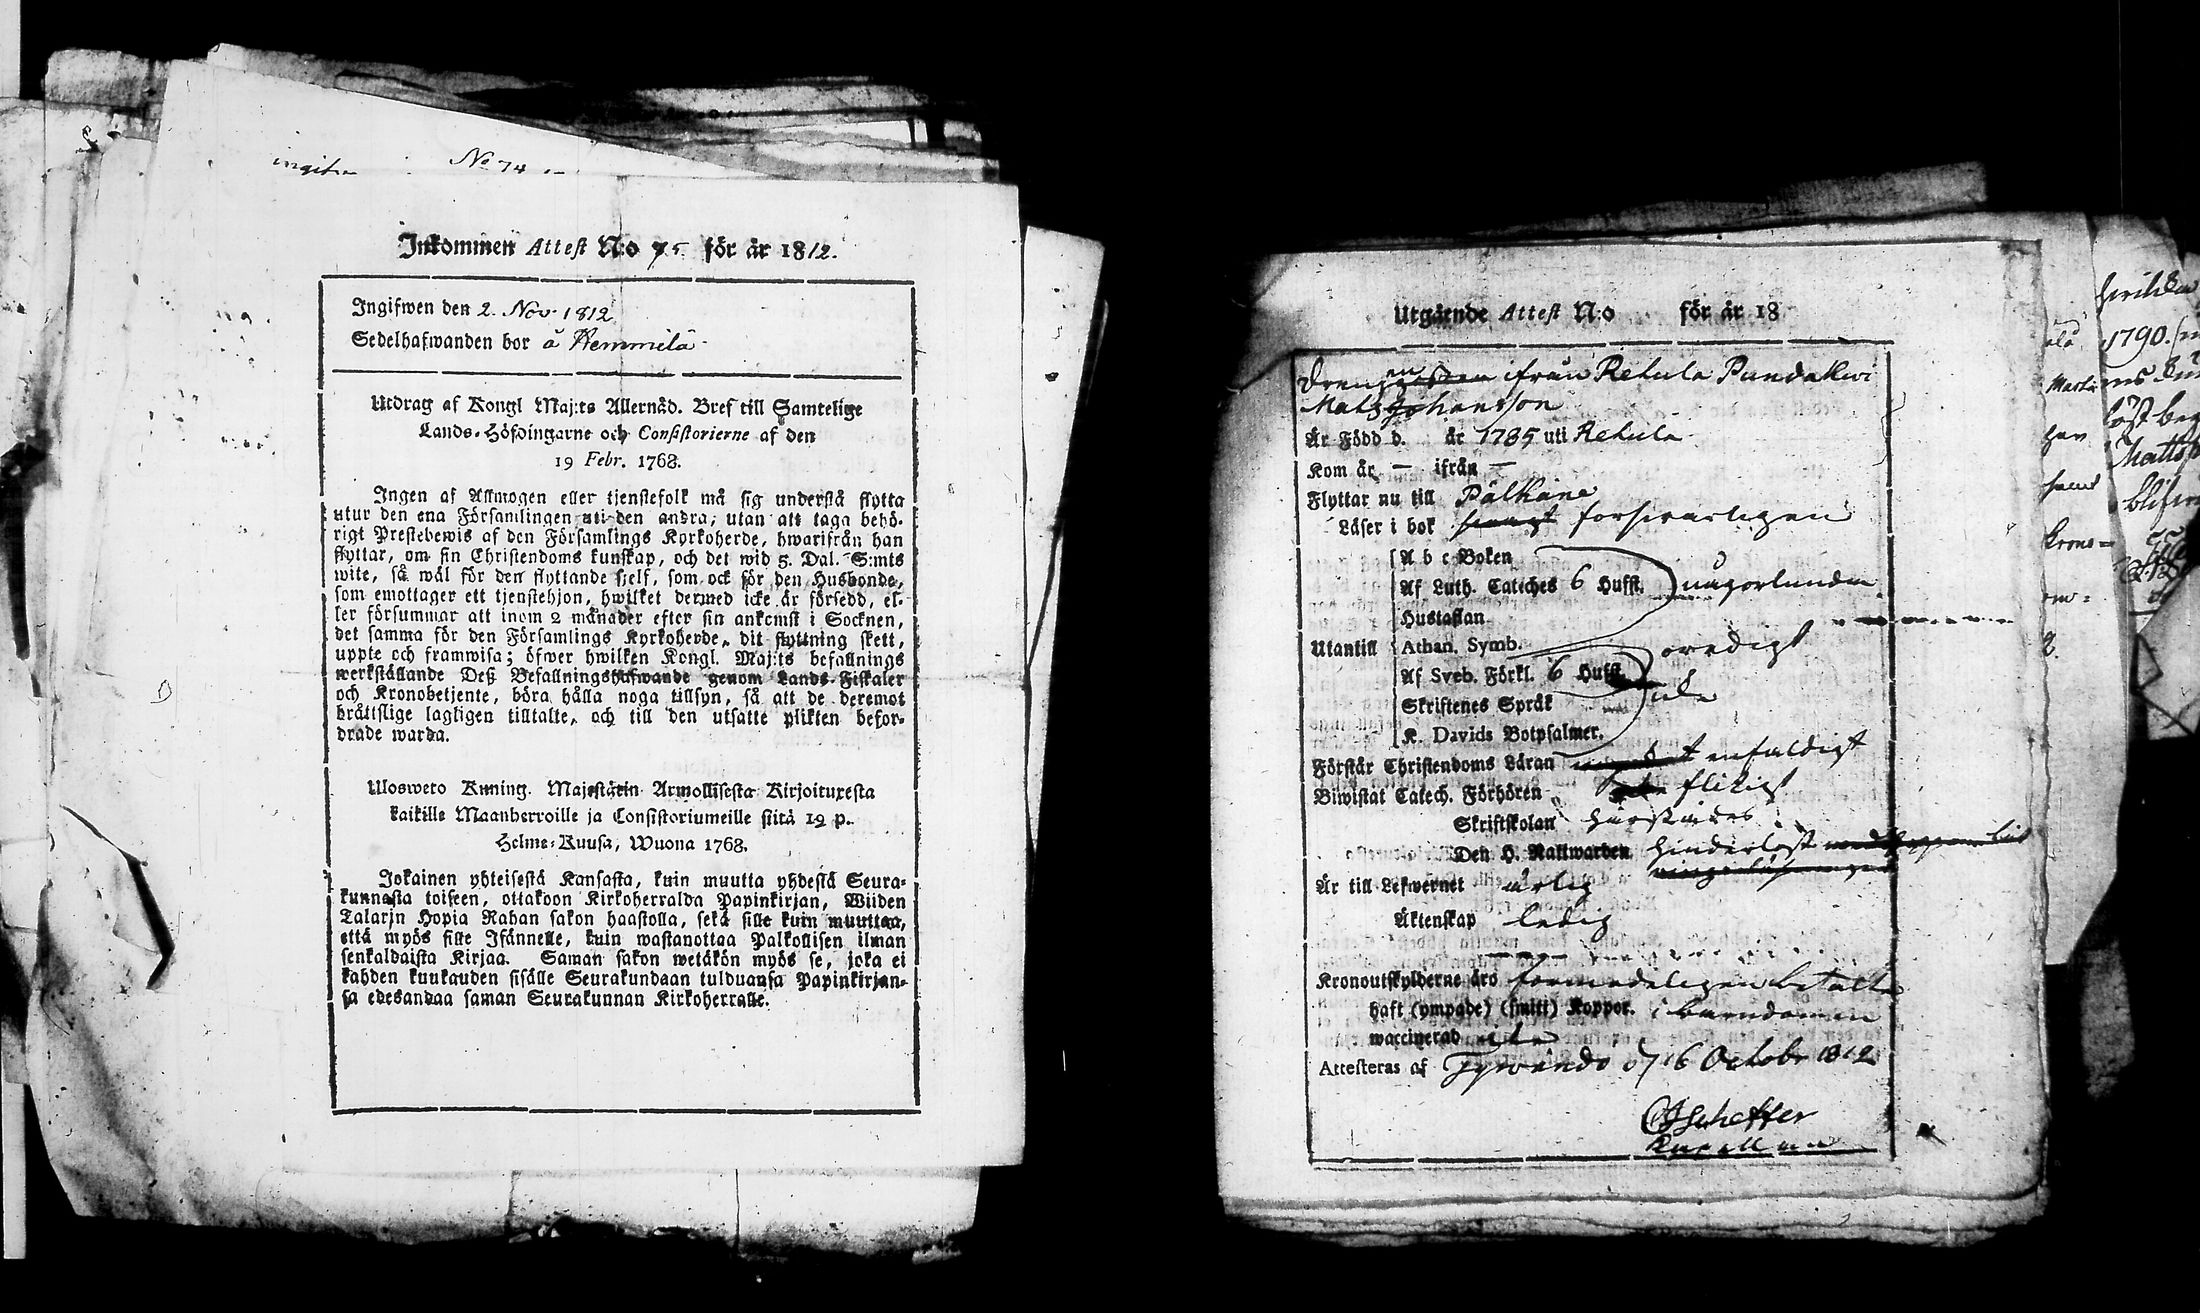 No 74
Inkommen Attest N:o 75 för år 1812.
Ingifwen den 2. Nov. 1812
Sedelhafwanden bor å Kemmilä
Utdrag af Kongl Maj:ts Allernåd. Bref till Samtelige
Lands-Höfdingarne och Consistorierne af den
19 Febr. 1768.
Ingen af Allmogen eller tjenstefolk må sig understå flytta
utur den ena Församlingen uti den andra, utan att taga behö-
rigt Prestebewis af den Församlings Kyrkoherde, hwarifrån han
flyttar, om sin Christendoms kunskap, och det wid 5. Dal. S:mts
wite, så wäl för den flyttande sjelf, som ock för den Husbonde,
som emottager ett tjenstehjon, hwilket dermed icke är försedd, el-
ler försummar att inom 2 månader efter sin ankomst i Socknen,
det samma för den Församlings Kyrkoherde, dit flyttning skett,
uppte och framwisa; öfwer hwilken Kongl. Maj:ts befallnings
werkställande Deß Befallningshafwande genom Lands-Fiskaler
och Kronobetjente, böra hålla noga tillsyn, så att de deremot
bråttslige lagligen tilltalte, och till den utsatte plikten befor-
drade warda.
Uloswero Kuning. Majestätin Armollisesta Kirjoituxesta
kaikille Maanherroille ja Consistoriumeille siitä 19 p.
Helme-Kuusa, Wuona 1768.
Jokainen yhteisestä Kansasta, kuin muutta yhdestä Seura-
kunnasta toiseen, ottakoon Kirkoherralda Papinkirjan, Wiiden
Talarin Hopia Rahan sakon haastolla, sekä sille kuin muuttaa,
että myös sille Isännelle, kuin wastanottaa Palkollisen ilman
senkaldaista Kirjaa. Saman sakon wetäkön myös se, joka ei
kahden kuukauden sisälle Seurakundaan tulduansa Papinkirjan-
sa edesandaa saman Seurakunnan Kirkoherralle.
Utgående Attest N:o för år 18
Drengen ifrån Retula Pundakivi
Mats Johansson
Är Född d. år 1785 uti Retula
Kom år — ifrån —
Flyttar nu till Pälkäne
Läser i bok försvarligen
A b c-Boken
Af Luth. Cateches 6 Hufst. någorlunda
Hustaflan
Utantill Athan. Symb. oredigt
Af Sveb. Förkl. 6 Hufst.
Skriftenes Språk
K. Davids Botpsalmer.
Förstår Christendoms Läran enfaldigt
Biwistat Catech. Förhören flitigt
Skriftskolan härstädes
Den H. Nattwarden hinderlöst
Är till Lefwernet ärlig
Äktenskap ledig
Kronoutskylderne äro förmodeligen betalta
haft (ympade) (smitt) Koppor. i barndomen
waccinerad
Attesteras af Tyrwändö d 16 October 1812
Scheffer
Kapellman
1790.